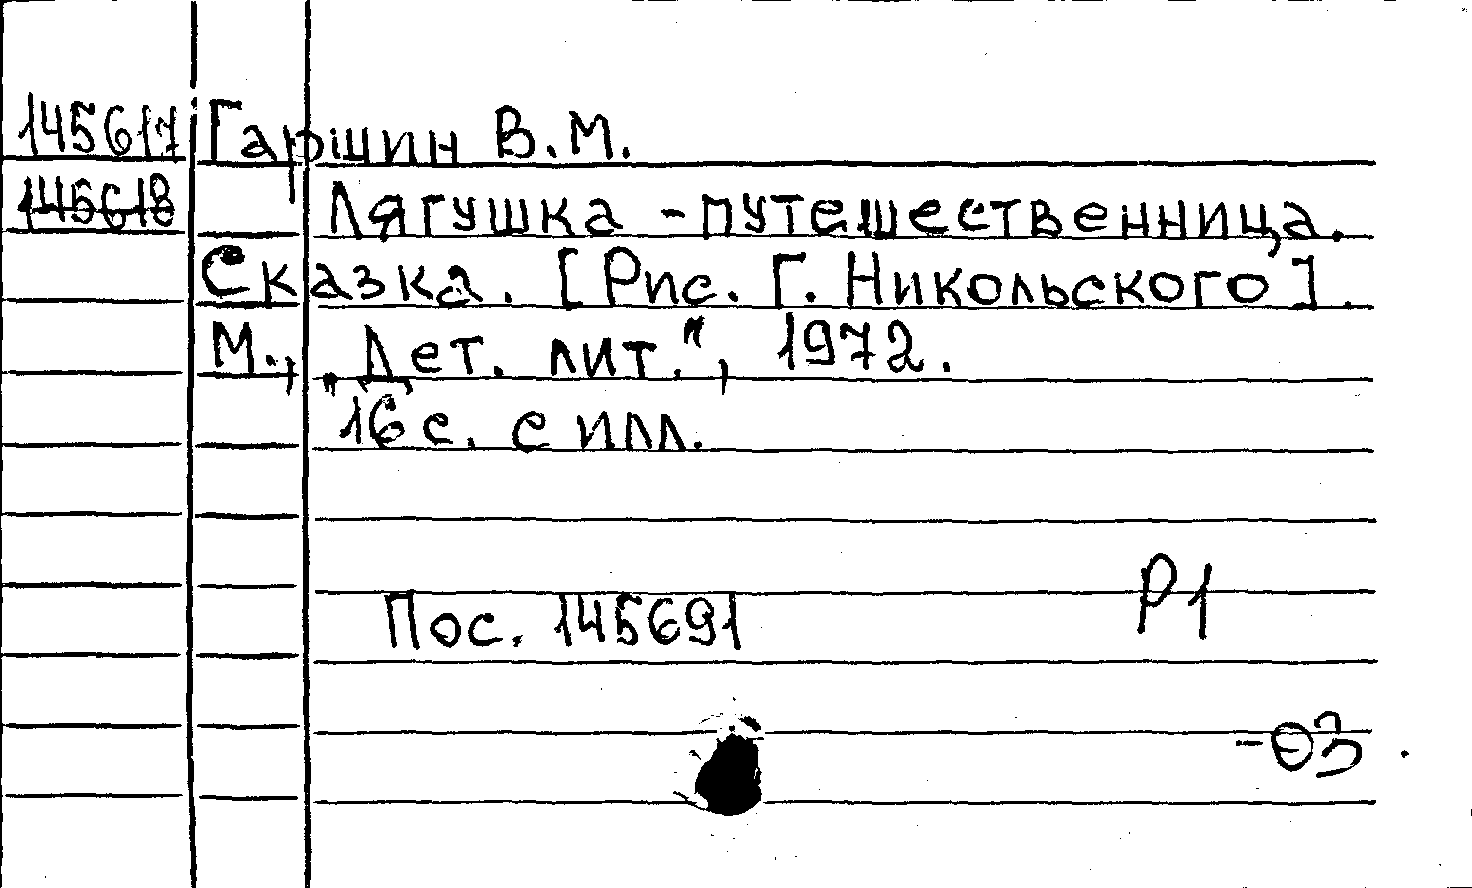 145617 Гаршин В.М.
145618 Лягушка-путешественница.
Сказка. [Рис. Г. Никольского].
М., „Дет. лит.", 1972.
16 с. с илл.
Пос. 145691 Р1
-03